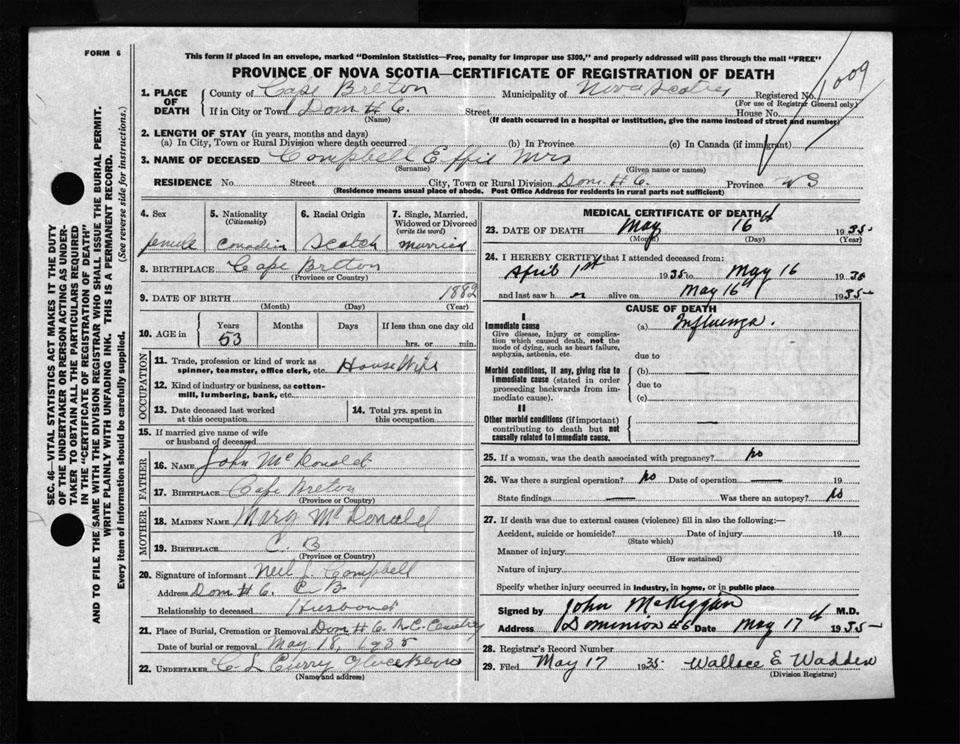 FORM 6
This form if placed in an envelope, marked "Dominion Statistics—Free, penalty for improper use $300," and properly addressed will pass through the mail "FREE"
PROVINCE OF NOVA SCOTIA—CERTIFICATE OF REGISTRATION OF DEATH
1. PLACE OF DEATH
County of Cape Breton Municipality of Nova Scotia Registered No. 1009
(For use of Registrar General only)
If in City or Town Dom # 6. Street House No.
(Name) (If death occurred in a hospital or institution, give the name instead of street and number)
2. LENGTH OF STAY (in years, months and days)
(a) In City, Town or Rural Division where death occurred (b) In Province (c) In Canada (if immigrant)
3. NAME OF DECEASED Campbell Effie Mrs
(Surname) (Given name or names)
RESIDENCE No. Street City, Town or Rural Division Dom # 6. Province NS
(Residence means usual place of abode. Post Office Address for residents in rural parts not sufficient)
4. Sex 5. Nationality (Citizenship) 6. Racial Origin 7. Single, Married, Widowed or Divorced (write the word)
female Canadian Scotch married
8. BIRTHPLACE Cape Breton
(Province or Country)
9. DATE OF BIRTH 1882
(Month) (Day) (Year)
10. AGE in Years Months Days If less than one day old
53 hrs. or min.
OCCUPATION
11. Trade, profession or kind of work as spinner, teamster, office clerk, etc. House Wife
12. Kind of industry or business, as cotton-mill, lumbering, bank, etc.
13. Date deceased last worked at this occupation 14. Total yrs. spent in this occupation
15. If married give name of wife or husband of deceased
FATHER
16. NAME John McDonald
17. BIRTHPLACE Cape Breton
(Province or Country)
MOTHER
18. MAIDEN NAME Mary McDonald
19. BIRTHPLACE C. B
(Province or Country)
20. Signature of informant Neil J. Campbell
Address Dom # 6. C B.
Relationship to deceased Husband
21. Place of Burial, Cremation or Removal Dom # 6. R.C.
Date of burial or removal May 18, 1935
22. UNDERTAKER C. L Curry Glace Bay
(Name and address)
MEDICAL CERTIFICATE OF DEATH
23. DATE OF DEATH May 16th 1935
(Month) (Day) (Year)
24. I HEREBY CERTIFY that I attended deceased from:
April 1st 1935 to May 16 1935
and last saw h alive on May 16th 1935
CAUSE OF DEATH
I
Immediate cause (a) Influenza.
Give disease, injury or complication which caused death, not the mode of dying, such as heart failure, asphyxia, asthenia, etc.
due to
Morbid conditions, if any, giving rise to immediate cause (stated in order proceeding backwards from immediate cause). (b) —
due to
(c)
II
Other morbid conditions (if important) contributing to death but not causally related to immediate cause. —
25. If a woman, was the death associated with pregnancy? No
26. Was there a surgical operation? No Date of operation — 19
State findings — Was there an autopsy? No
27. If death was due to external causes (violence) fill in also the following:—
Accident, suicide or homicide? Date of injury 19
(State which)
Manner of injury
(How sustained)
Nature of injury
Specify whether injury occurred in industry, in home, or in public place
Signed by John McKiggan M.D.
Address Dominion #6 Date May 17th 1935
28. Registrar's Record Number
29. Filed May 17 1935 Wallace E Wadden
(Division Registrar)
SEC. 46—VITAL STATISTICS ACT MAKES IT THE DUTY
OF THE UNDERTAKER OR PERSON ACTING AS UNDER-
TAKER TO OBTAIN ALL THE PARTICULARS REQUIRED
IN THE "CERTIFICATE OF REGISTRATION OF DEATH"
AND TO FILE THE SAME WITH THE DIVISION REGISTRAR WHO SHALL ISSUE THE BURIAL PERMIT.
WRITE PLAINLY WITH UNFADING INK. THIS IS A PERMANENT RECORD.
Every item of information should be carefully supplied. (See reverse side for instructions.)